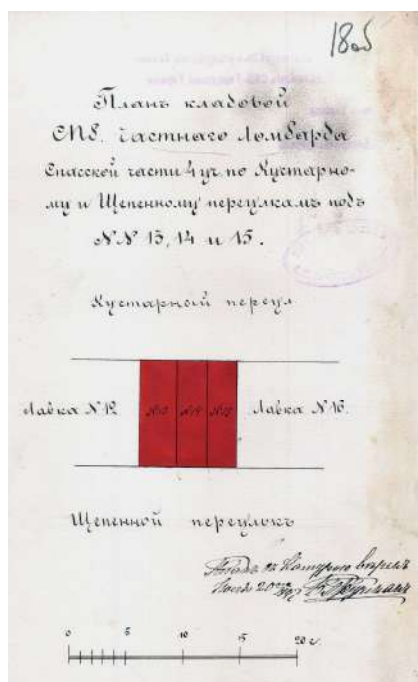 18об
Планъ кладовой
СПб. Частнаго Ломбарда
Спасской части 4 уч. по Кустарно-
му и Щепенному переулкамъ подъ
№№ 13, 14 и 15.
Кустарный переул
Лавка № 12 №13 №14 №15 Лавка № 16.
Щепенной переулокъ
0 5 10 15 20 с.